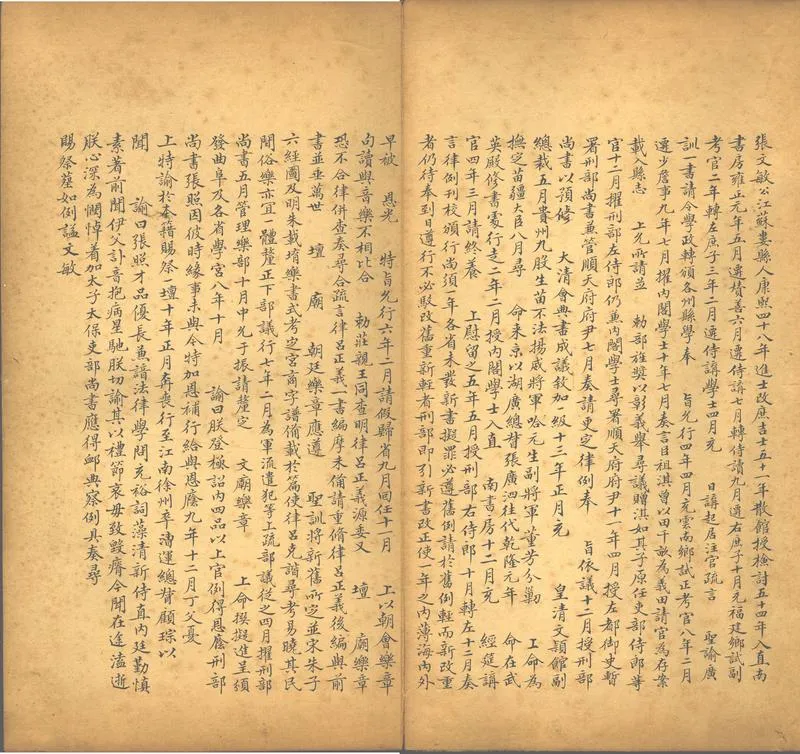 張文敏公江蘇婁縣人康熙四十八年進士改庶吉士五十一年散館授檢討五十四年入直南
書房雍正元年五月遷贊善六月遷侍講七月轉侍讀九月遷右庶子十月充福建鄉試副
考官二年轉左庶子三年二月遷侍講學士四月充 日講起居注官疏言 聖諭廣
訓一書請令學政轉頒各州縣學奉 旨允行四年四月充雲南鄉試正考官八年二月
遷少詹事九年七月擢內閣學士十年七月奏言曰祖淇曾以田千畝為義田請官為存案
載入縣志 上允所請並 勅部旌獎以彰義舉尋議贈淇如其子原任吏部侍郎等
官十二月擢刑部左侍郎仍兼內閣學士尋署順天府府尹十一年四月授左都御史暫
署刑部尚書兼管順天府府尹七月奏請更定律例奉 旨依議十二月授刑部
尚書以預修 大清會典書成議敘加一級十三年正月充 皇清文穎館副
總裁五月貴州九股生苗不法揚威將軍哈元生副將軍董芳分勦 上命為
撫定苗疆大臣八月尋 命來京以湖廣總督張廣泗往代乾隆元年 命在武
英殿修書處行走二年二月授內閣學士入直 南書房十二月充 經筵講
官四年三月請終養 上慰留之五年五月授刑部右侍郎十月轉左十二月奏
言律例刊校頒行尚須一年各省未發新書擬罪必遵舊例請於舊例輕而新改重
者仍待奏到日遵行不必駁改舊重新輕者刑部即引新書改正使一年之內薄海內外
早被 恩光 特旨允行六年二月請假歸省九月回任十一月 上以朝會樂章
句讀與音樂不相比合 勅莊親王同查明律呂正義源委又 壇 廟樂章
恐不合律併查奏尋合疏言律呂正義一書編摩未備請重脩律呂正義後編與前
書並垂萬世 壇 廟 朝廷樂章應遵 聖訓將新舊所定並宋朱子
六經圖及明朱載堉樂書式考定宮商字譜備載於篇使律呂克諧尋考易曉其民
間俗樂亦宜一體釐正下部議行七年二月為軍流遣犯等上疏部議從之四月擢刑部
尚書五月管理樂部十月申允于振請釐定 文廟樂章 上命撰擬進呈須
發曲阜及各省學宮八年十月 諭曰朕登極詔內四品以上官例得恩廕刑部
尚書張照因彼時緣事未與令特加恩補行給與恩廕九年十二月丁父憂
上特諭於本籍賜祭一壇十年正月奔喪行至江南徐州卒漕運總督顧琮以
聞 諭曰張照才品優長兼諳法律學問充裕詞藻清新侍直內廷勤慎
素著前聞伊父訃音抱病星馳朕切諭其以禮節哀毋致毀瘠今聞在途溘逝
朕心深為憫悼着加太子太保吏部尚書應得卹典察例具奏尋
賜祭塟如例謚文敏